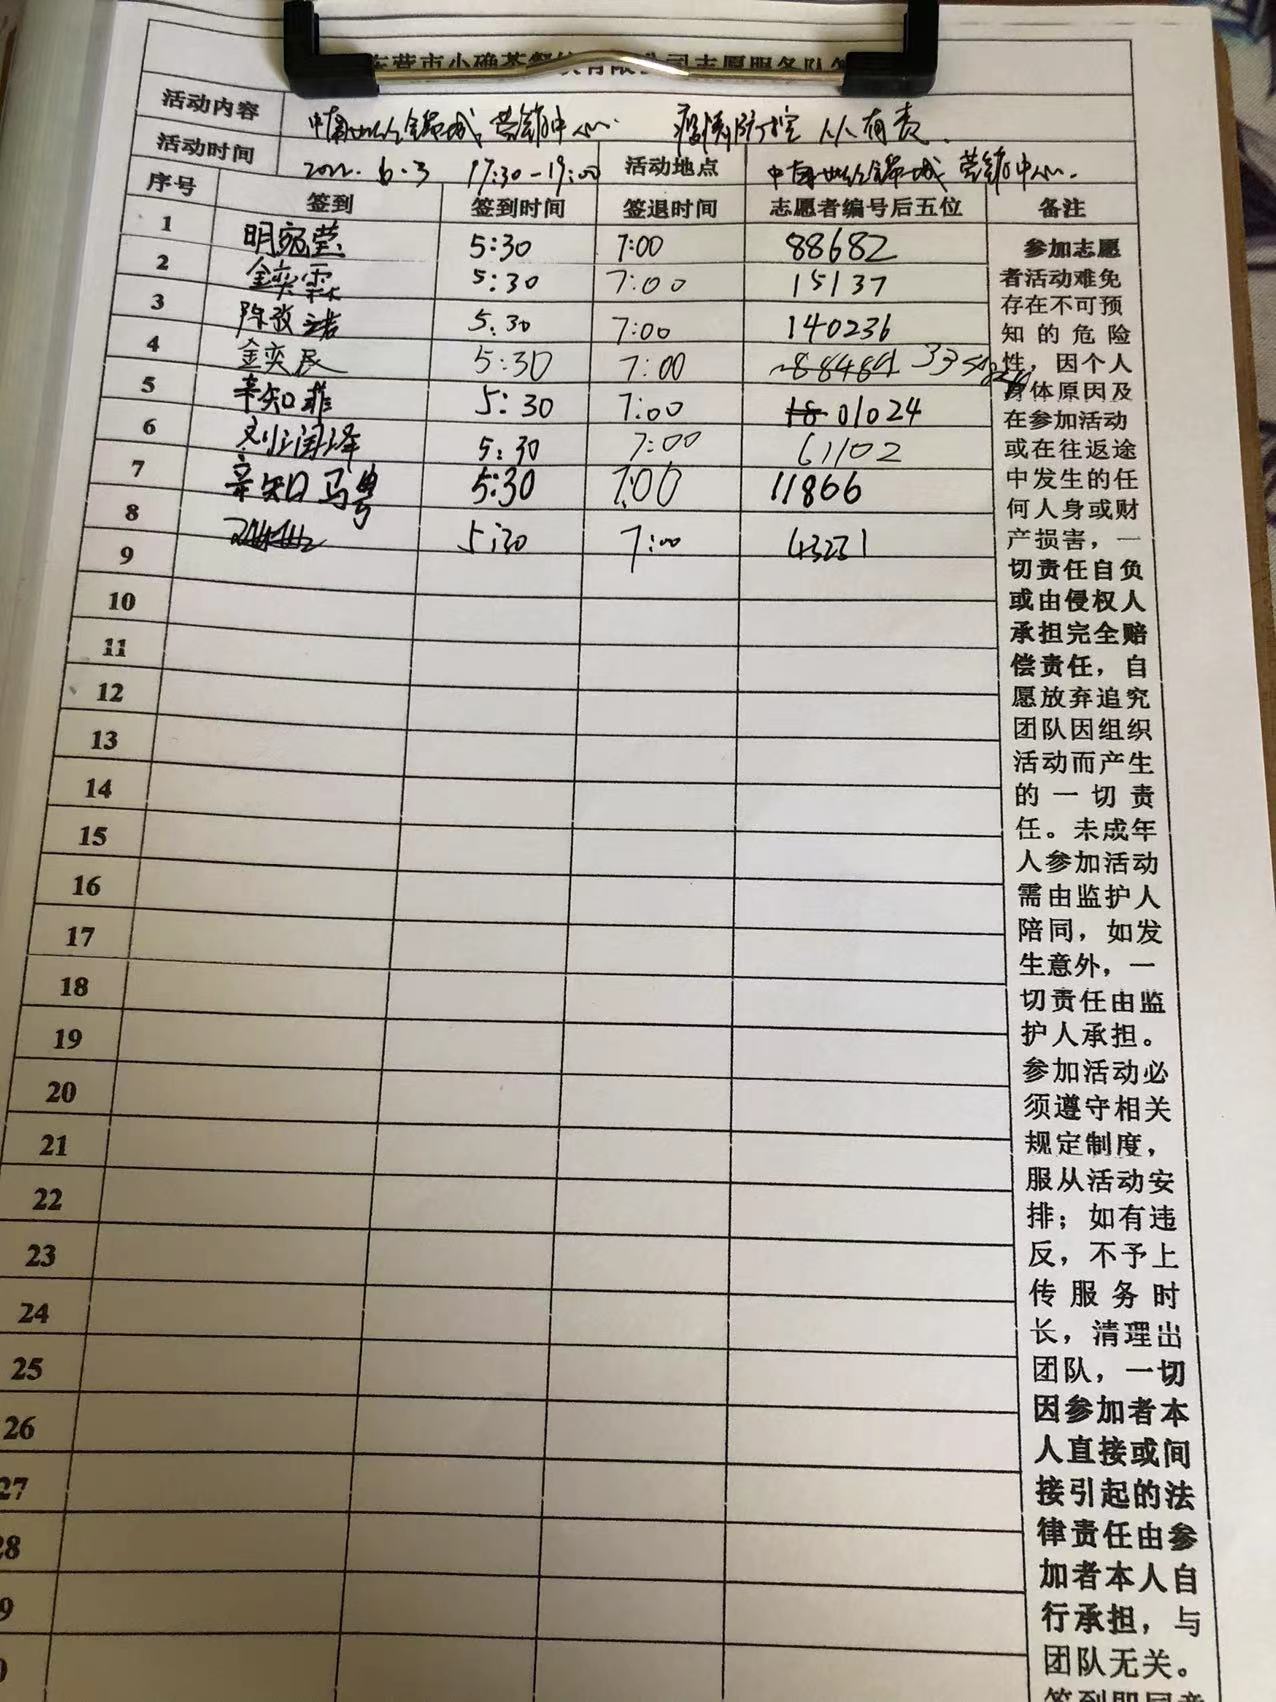 东营市小确茶餐饮有限公司志愿服务队
活动内容 营销中心 疫情防控 人人有责
活动时间 2022.6.3 17:30-19:00 活动地点 营销中心
序号 签到 签到时间 签退时间 志愿者编号后五位 备注
1 明宛莹 5:30 7:00 88682
2 金奕霖 5:30 7:00 15137
3 5:30 7:00 140236
4 金奕辰 5:30 7:00
5 辛知菲 5:30 7:00 01024
6 刘润泽 5:30 7:00 61102
7 辛知 5:30 7:00 11866
8 5:30 7:00 43231
9
10
11
12
13
14
15
16
17
18
19
20
21
22
23
24
25
26
27
28
9
0
参加志愿
者活动难免
存在不可预
知的危险
性，因个人
身体原因及
在参加活动
或在往返途
中发生的任
何人身或财
产损害，一
切责任自负
或由侵权人
承担完全赔
偿责任，自
愿放弃追究
团队因组织
活动而产生
的一切责
任。未成年
人参加活动
需由监护人
陪同，如发
生意外，一
切责任由监
护人承担。
参加活动必
须遵守相关
规定制度，
服从活动安
排；如有违
反，不予上
传服务时
长，清理出
团队，一切
因参加者本
人直接或间
接引起的法
律责任由参
加者本人自
行承担，与
团队无关。
签到即同意